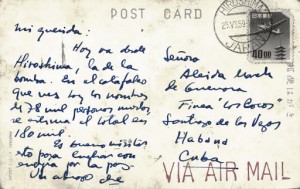 POST CARD
mi querida:
Hoy va desde
Hiroshima, la de la
bomba. En el catafalco
que ves hay los nombres
de 78 mil personas muertas,
se estima el total en
180 mil.
Es bueno visitar
esto para luchar con
energía por la paz.
Un abrazo
Señora
Aleida March
de Guevara
Finca "Los Cocos"
Santiago de las Vegas
Habana
Cuba
HIROSHIMA
JAPAN
40.00
VIA AIR MAIL